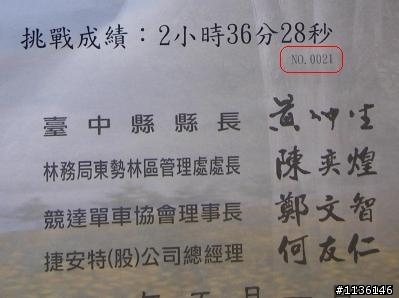 挑戰成績：2小時36分28秒
NO.0021
臺中縣縣長 黃仲生
林務局東勢林區管理處處長 陳奕煌
競達單車協會理事長 鄭文智
捷安特(股)公司總經理 何友仁
#1136146